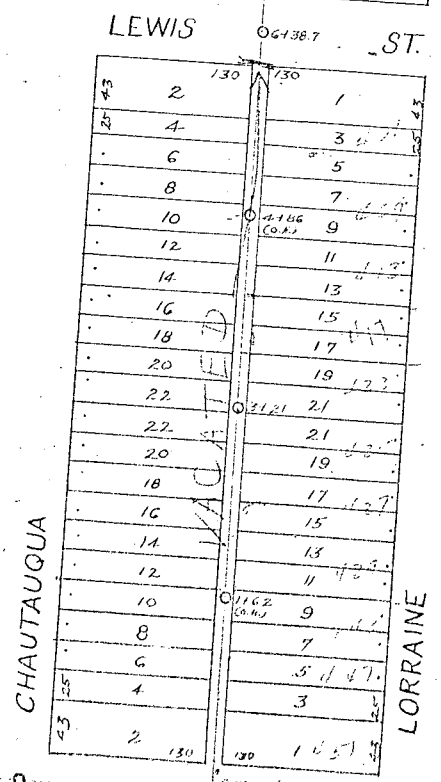 LEWIS ST.
6+38.7
130 130
43 2 1 43
25 4 3 25
6 5
8 7
10 4+86 9
(O.H.)
12 11
14 13
16 15
18 17
20 19
22 3+21 21
22 21
20 19
18 17
16 15
14 13
12 11
10 1+62 9
(O.H.)
8 7
6 5
25 4 3 25
43 2 1 451 43
130 130
VACATED
CHAUTAUQUA
LORRAINE